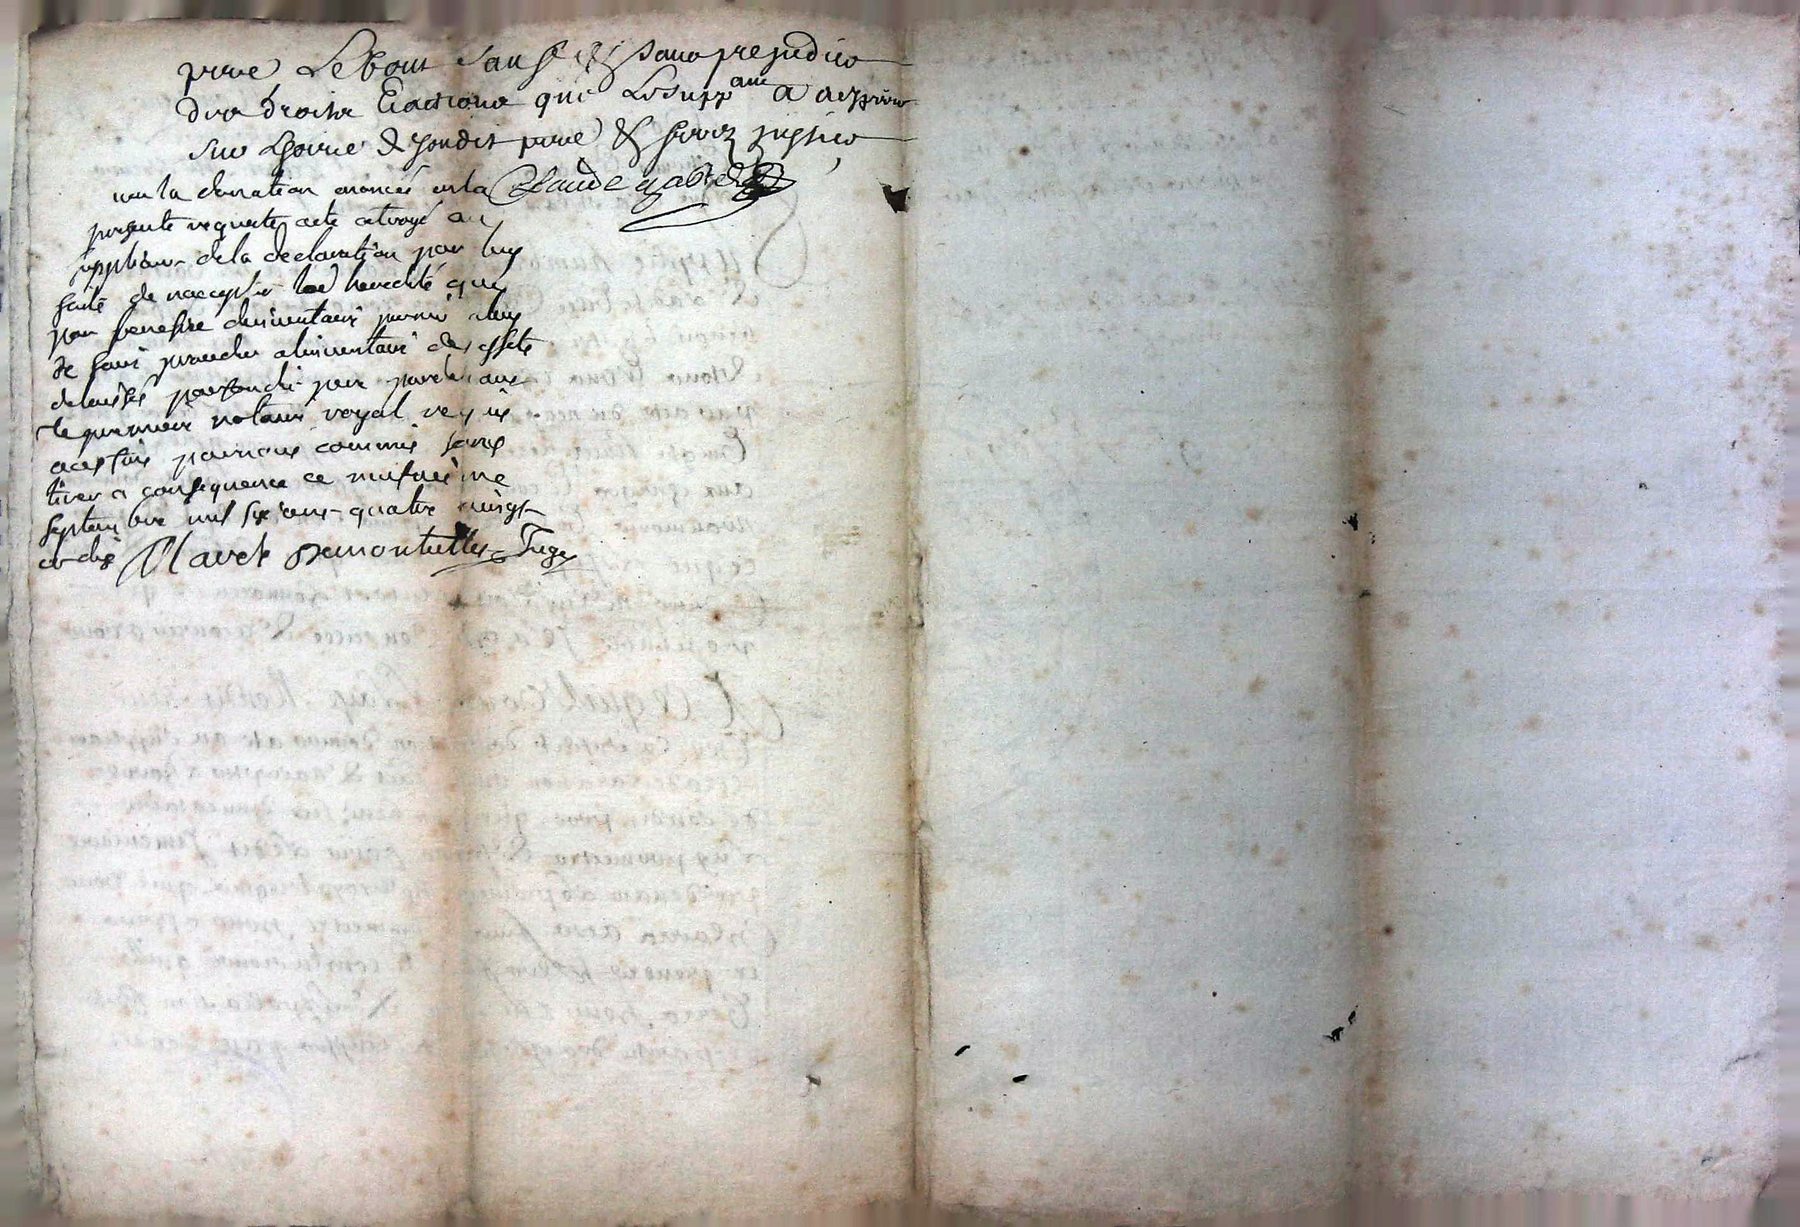 pere Le tout sauf & sans prejudice
des droits Et actions que Le supp^ant a a exercer
sur Lhoirie de sondit pere & ferez justice
veu la donation enoncée en la Claude
presente requeste acte octroyé au
suppliant de la declaration par luy
faite de naccepter hereditté que
par benefice dinventaire permis a luy
de faire proceder a linventaire des effets
delaissés par sondit pere pardevant
le premier notaire royal requis
a ces fins par nous commis sans
tirer a consequence ce
septembre mil six cens quatre vingt
et dix Juge